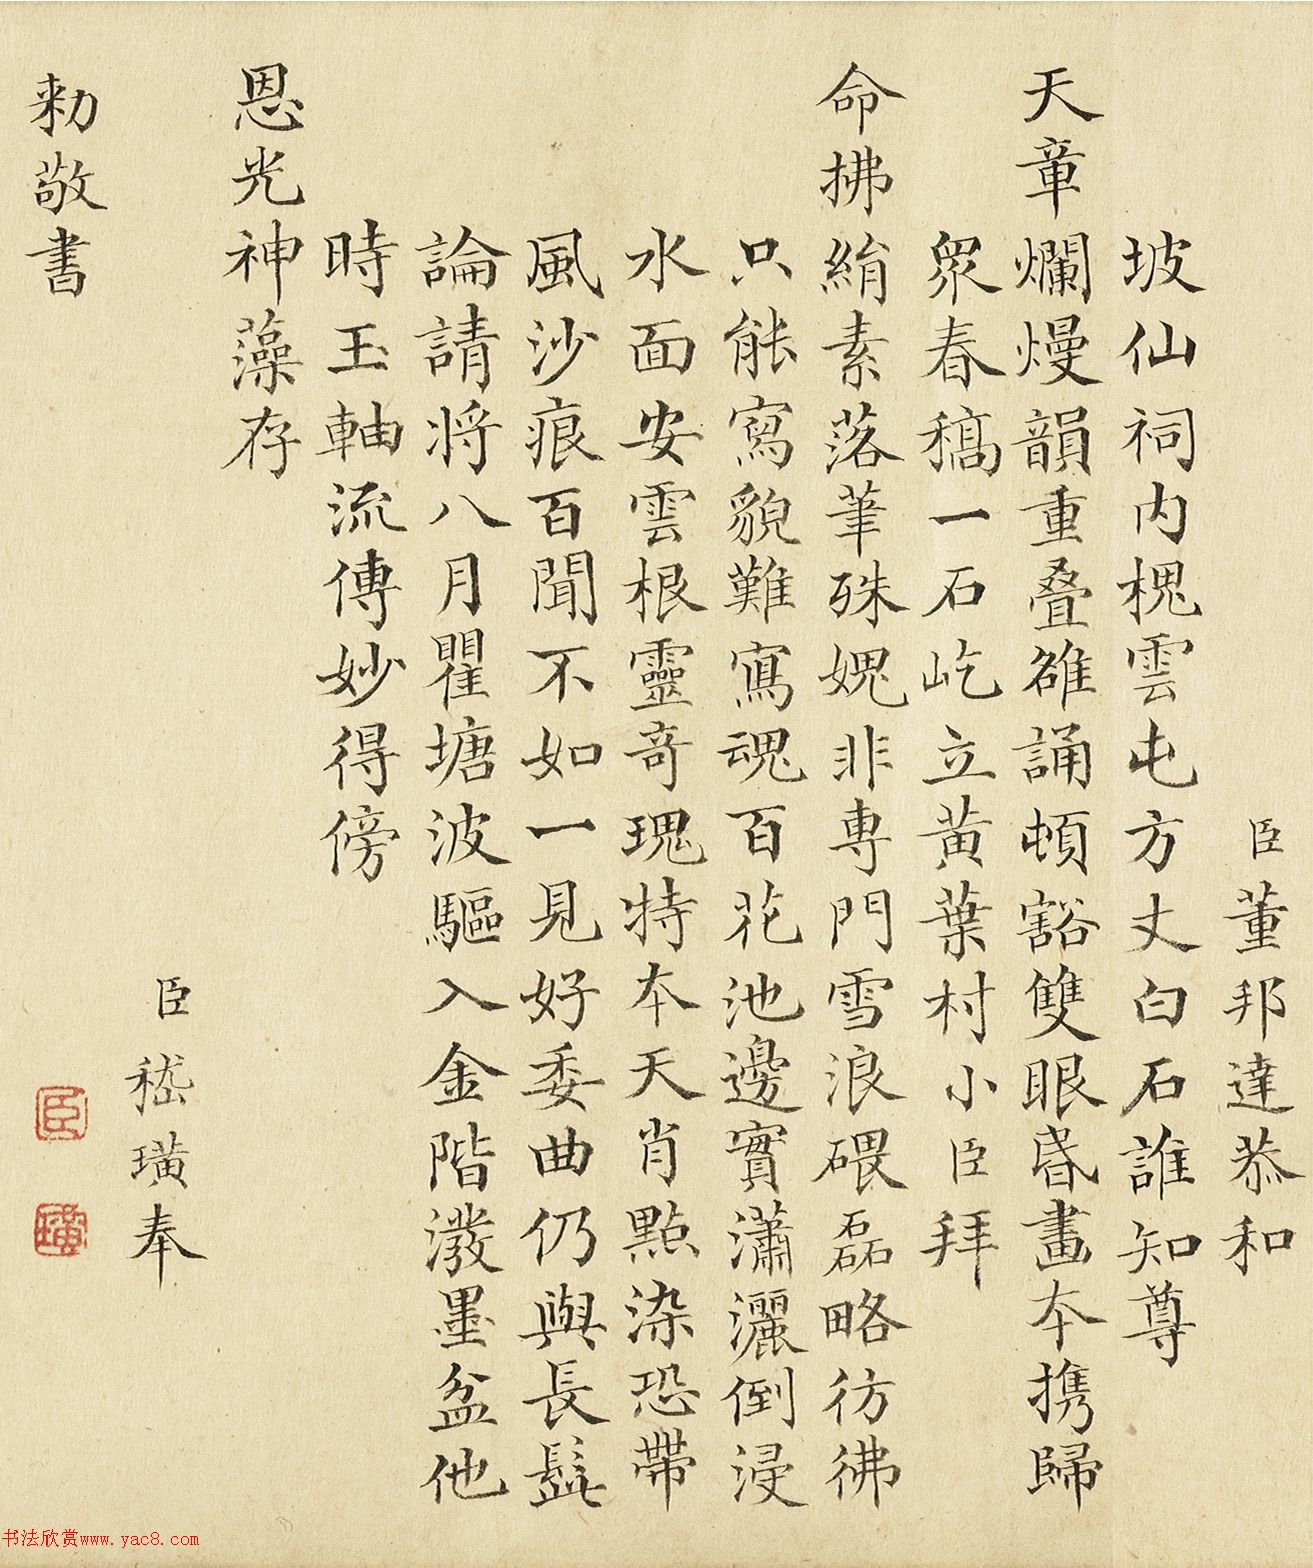 臣董邦達恭和
坡仙祠内槐雲屯方丈白石誰知尊
天章爛熳韻重叠雒誦頓豁雙眼昏畫本携歸
衆春稿一石屹立黄葉村小臣拜
命拂絹素落筆殊媿非專門雪浪碨磊略彷彿
只能寫貌難寫魂百花池邊實瀟灑倒浸
水面安雲根靈竒瑰特本天肖點染恐帶
風沙痕百聞不如一見好委曲仍與長髯
論請将八月瞿塘波驅入金階潑墨盆他
時玉軸流傳妙得傍
恩光神藻存
臣嵇璜奉
勅敬書
臣
璜
书法欣赏www.yac8.com